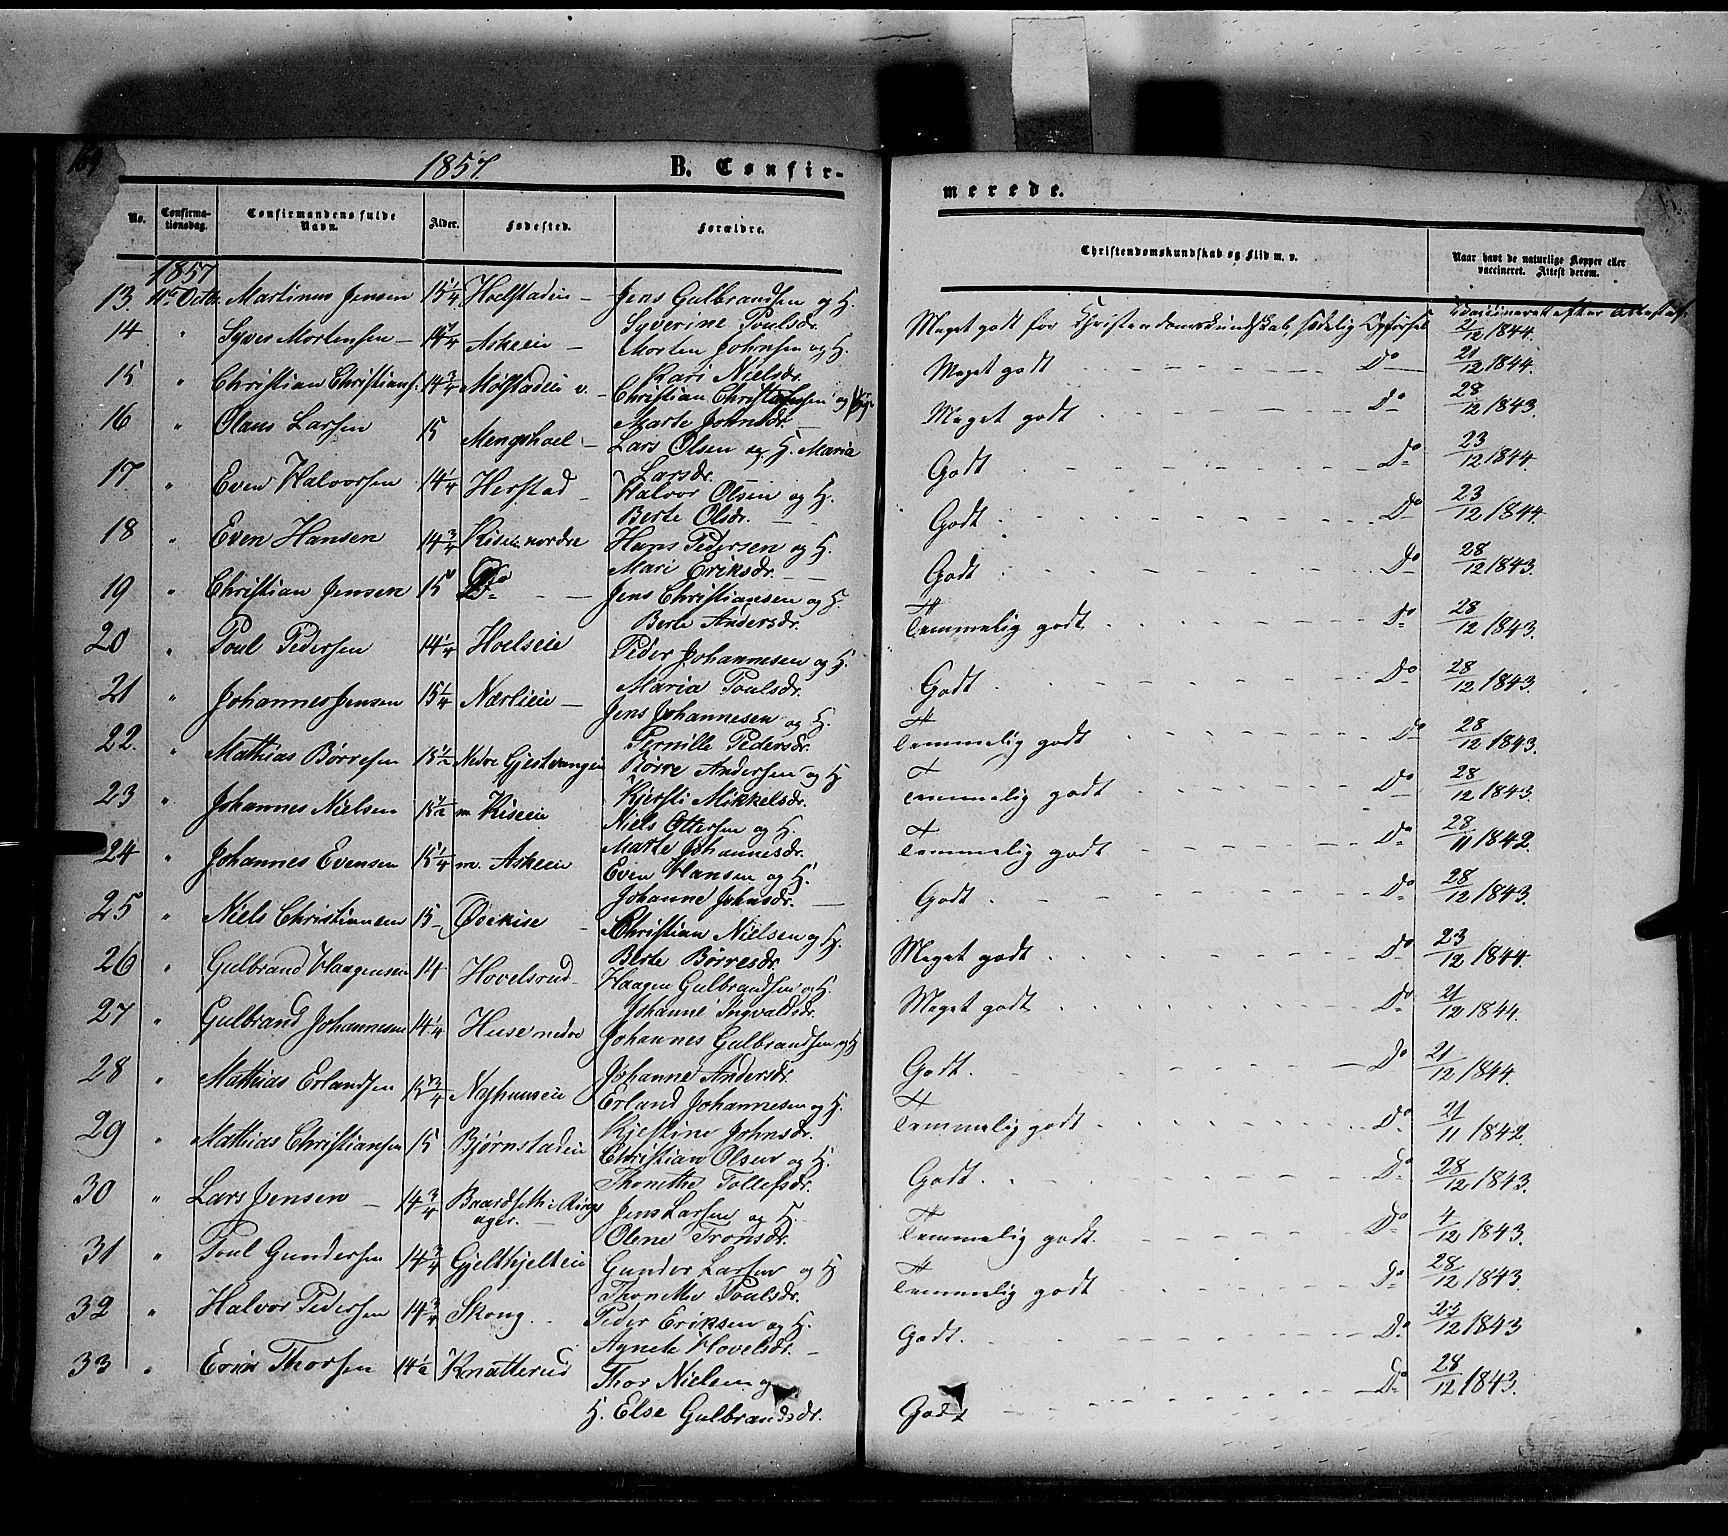 169
1857 B. Confir-
merede.
No. Confirma-tionsdag. Confirmandens fulde Navn. Alder. Fødested. Forældre.
Christendomskundskab og Flid m. v. Naar havt de naturlige Kopper eller vaccineret. Attest derom.
1857
13. 11te Octbr. Martinus Jensen 15 1/4 Hoelstadeie – Jens Gulbrandsen og H. Syverine Poulsdr. Meget godt for Christendomskundskab, sædelig Opførsel Vaccineret efter Attest af 21/12 1844.
14 " Syver Mortensen – 14 1/4 Askeeie – Morten Johnsen og H. Kari Nielsdr. Meget godt Do 21/12 1844.
15 " Christian Christians. 14 3/4 Molstadeie v. – Christian Christiansen og Marte Johnsdr. Meget godt Do 28/12 1843.
16 " Olaus Larsen 15 Mengshoel – Lars Olsen og H. Maria Larsdr. Godt Do 23/12 1844.
17 " Even Halvorsen 14 1/4 Herstad – Halvor Olsen og H. Berte Olsdr. Godt Do 23/12 1844.
18 " Even Hansen 14 3/4 Kise nordre Hans Pedersen og H. Mari Eriksdr. Godt Do 28/12 1843.
19 " Christian Jensen 15 Do – Jens Christiansen og H. Berte Andersdr. Temmelig godt Do 28/12 1843.
20 " Poul Pedersen 14 1/4 Hoelseie Peder Johannesen og H. Maria Poulsdr. Godt Do 28/12 1843.
21 " Johannes Jensen 15 1/4 Nærlieie – Jens Johannesen og H. Pernille Pedersdr. Temmelig godt Do 28/12 1843.
22. " Mathias Børresen 15 1/2 Nedre Gjestvangen Børre Andersen og H Kjersti Mikkelsdr. Temmelig godt Do 28/12 1843.
23 " Johannes Nielsen 15 1/2 m. Kiseeie Niels Ottersen og H. Marte Johannesdr. Temmelig godt Do 28/11 1842.
24 " Johannes Evensen 15 1/4 m. Askeeie Even Hansen og H. Johanne Johnsdr. Godt Do 28/12 1843.
25 " Niels Christiansen 15 – Øvekise Christian Nielsen og H. Berte Børresdr. Meget godt Do 23/12 1844.
26 " Gulbrand Haagensen 14 Hovelsrud Haagen Gulbrandsen og H. Johanne Ingvaldsdr. Meget godt Do 21/12 1844.
27 " Gulbrand Johannesen 14 1/4 Huse nedre Johannes Gulbrandsen og H Johanne Andersdr. Godt. Do 21/12 1844.
28 " Mathias Erlandsen 15 3/4 Næshuuseie Erland Johannesen og H. Kjestine Johnsdr. Temmelig godt Do 21/11 1842.
29 " Mathias Christiansen 15 Bjørnstadeie Christian Olsen og H. Thonethe Tollefsdr. Godt. Do 28/12 1843.
30 " Lars Jensen – 14 3/4 Baardseth i Rings ager. – Jens Larsen og H. Olene Tronsdr. Temmelig godt. Do 4/12 1843.
31 " Poul Gundersen 14 3/4 Gjelthjelteie Gunder Larsen og H Thonethe Poulsdr. Temmelig godt Do 28/12 1843
32 " Halvor Pedersen 14 3/4 Skoug. Peder Eriksen og H. Agnete Hovelsdr. – Godt. Do 23/12 1843
33 " Even Thorsen 14 1/2 Knatterud Thor Nielsen og H. Else Gulbrandsdr. Godt Do 28/12 1843.